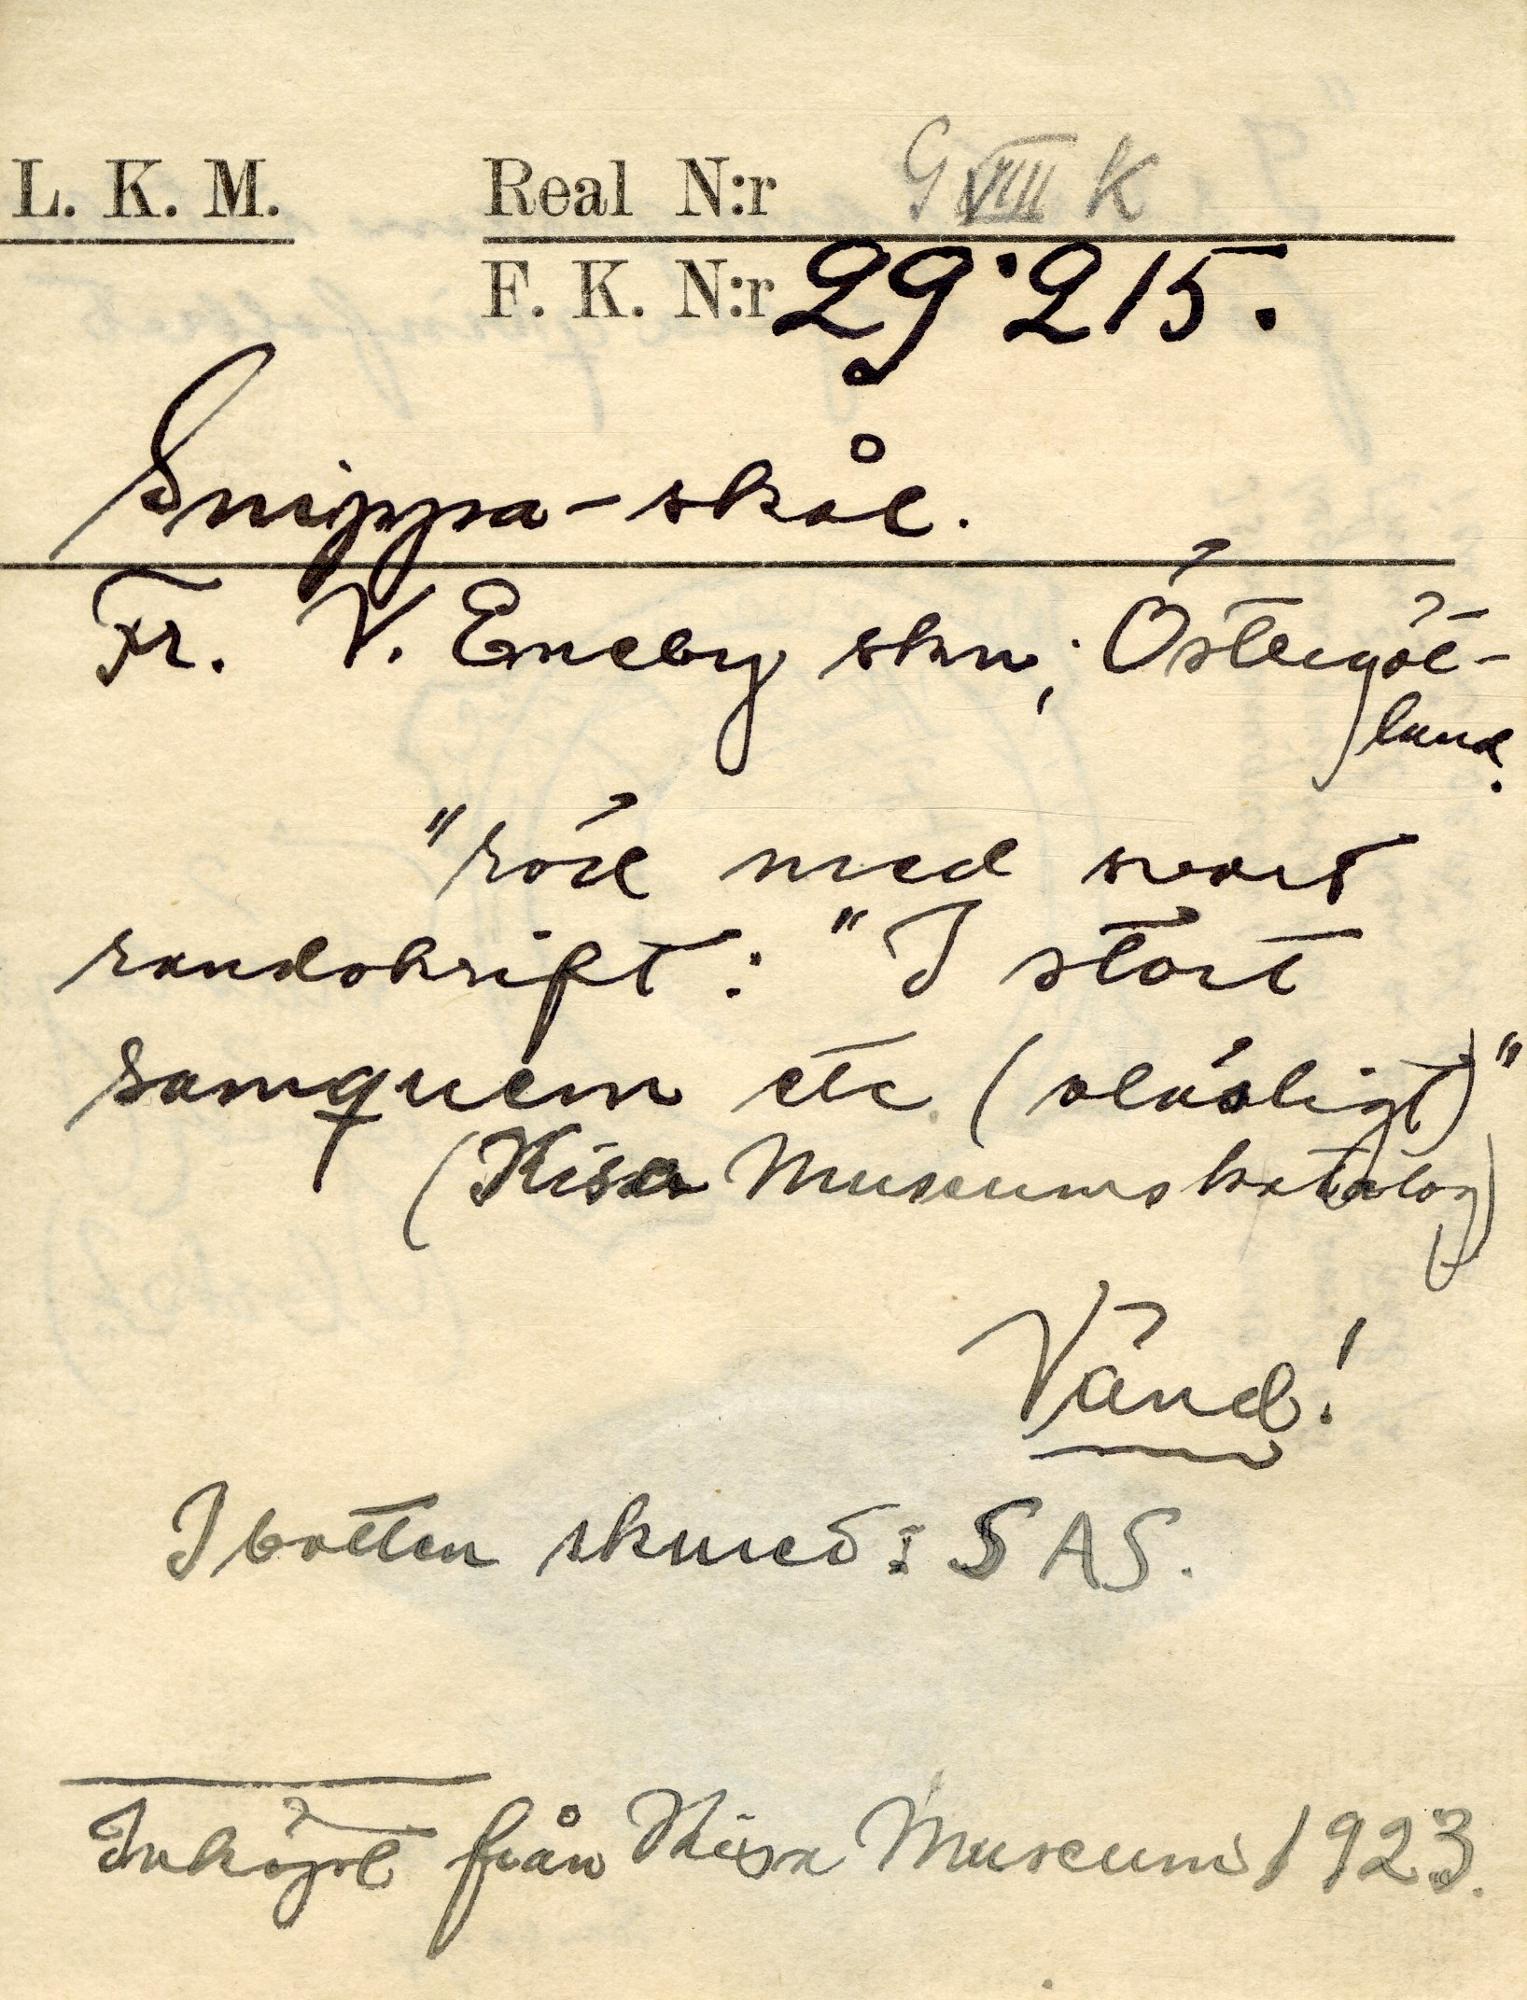 L. K. M. Real N:r G VIII K
F. K. N:r 29·215.
Snippa-skål.
Fr. V. Eneby skn, Östergöt-
land.
"röd med svart
randskrift: "I stort
samquem etc. (oläsligt)"
(Kisa Museums katalog)
Vänd!
I botten skuret: SAS.
Inköpt från Kisa Museum 1923.